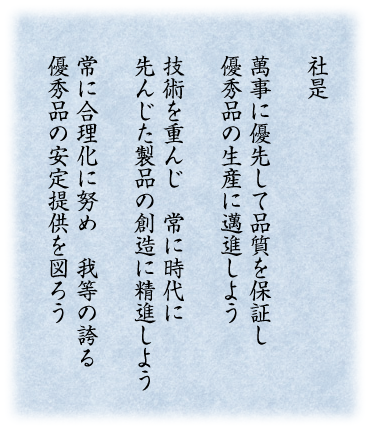 社是
萬事に優先して品質を保証し
優秀品の生産に邁進しよう
技術を重んじ　常に時代に
先んじた製品の創造に精進しよう
常に合理化に努め　我等の誇る
優秀品の安定提供を図ろう